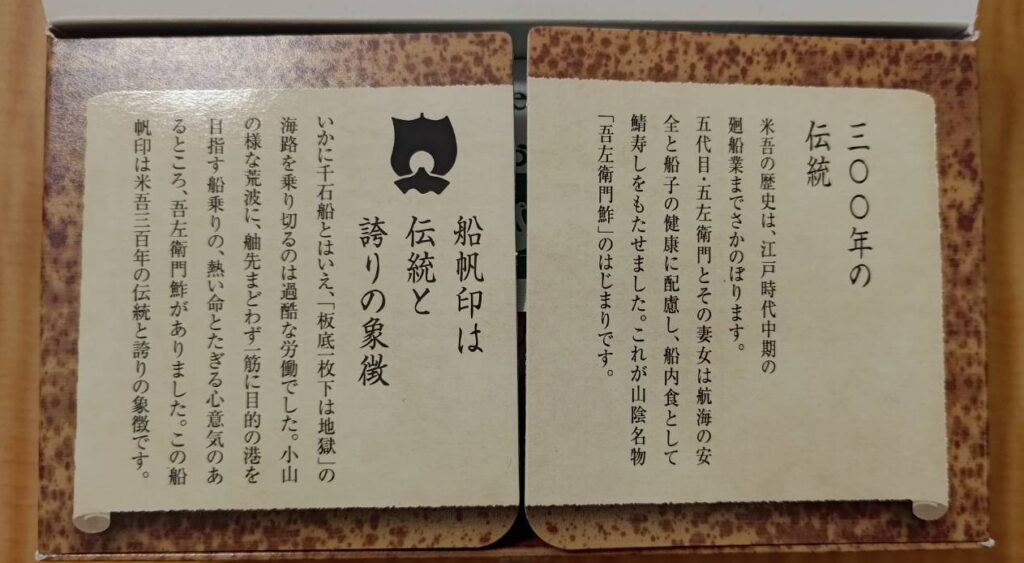 三〇〇年の
伝統
米吾の歴史は、江戸時代中期の
廻船業までさかのぼります。
五代目・五左衛門とその妻女は航海の安
全と船子の健康に配慮し、船内食として
鯖寿しをもたせました。これが山陰名物
「吾左衛門鮓」のはじまりです。
船帆印は
伝統と
誇りの象徴
いかに千石船とはいえ、「板底一枚下は地獄」の
海路を乗り切るのは過酷な労働でした。小山
の様な荒波に、舳先まどわず一筋に目的の港を
目指す船乗りの、熱い命とたぎる心意気のあ
るところ、吾左衛門鮓がありました。この船
帆印は米吾三百年の伝統と誇りの象徴です。